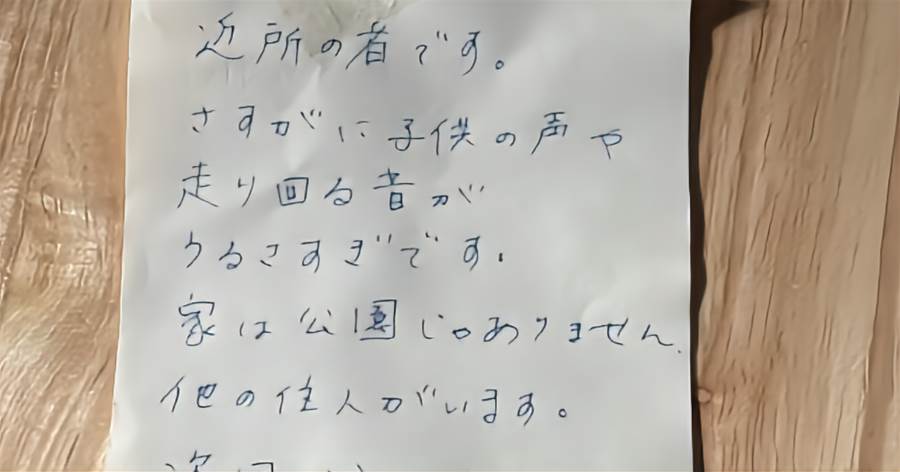 近所の者です。
さすがに子供の声や
走り回る音が
うるさすぎです.
家は公園じゃありません.
他の住人がいます。